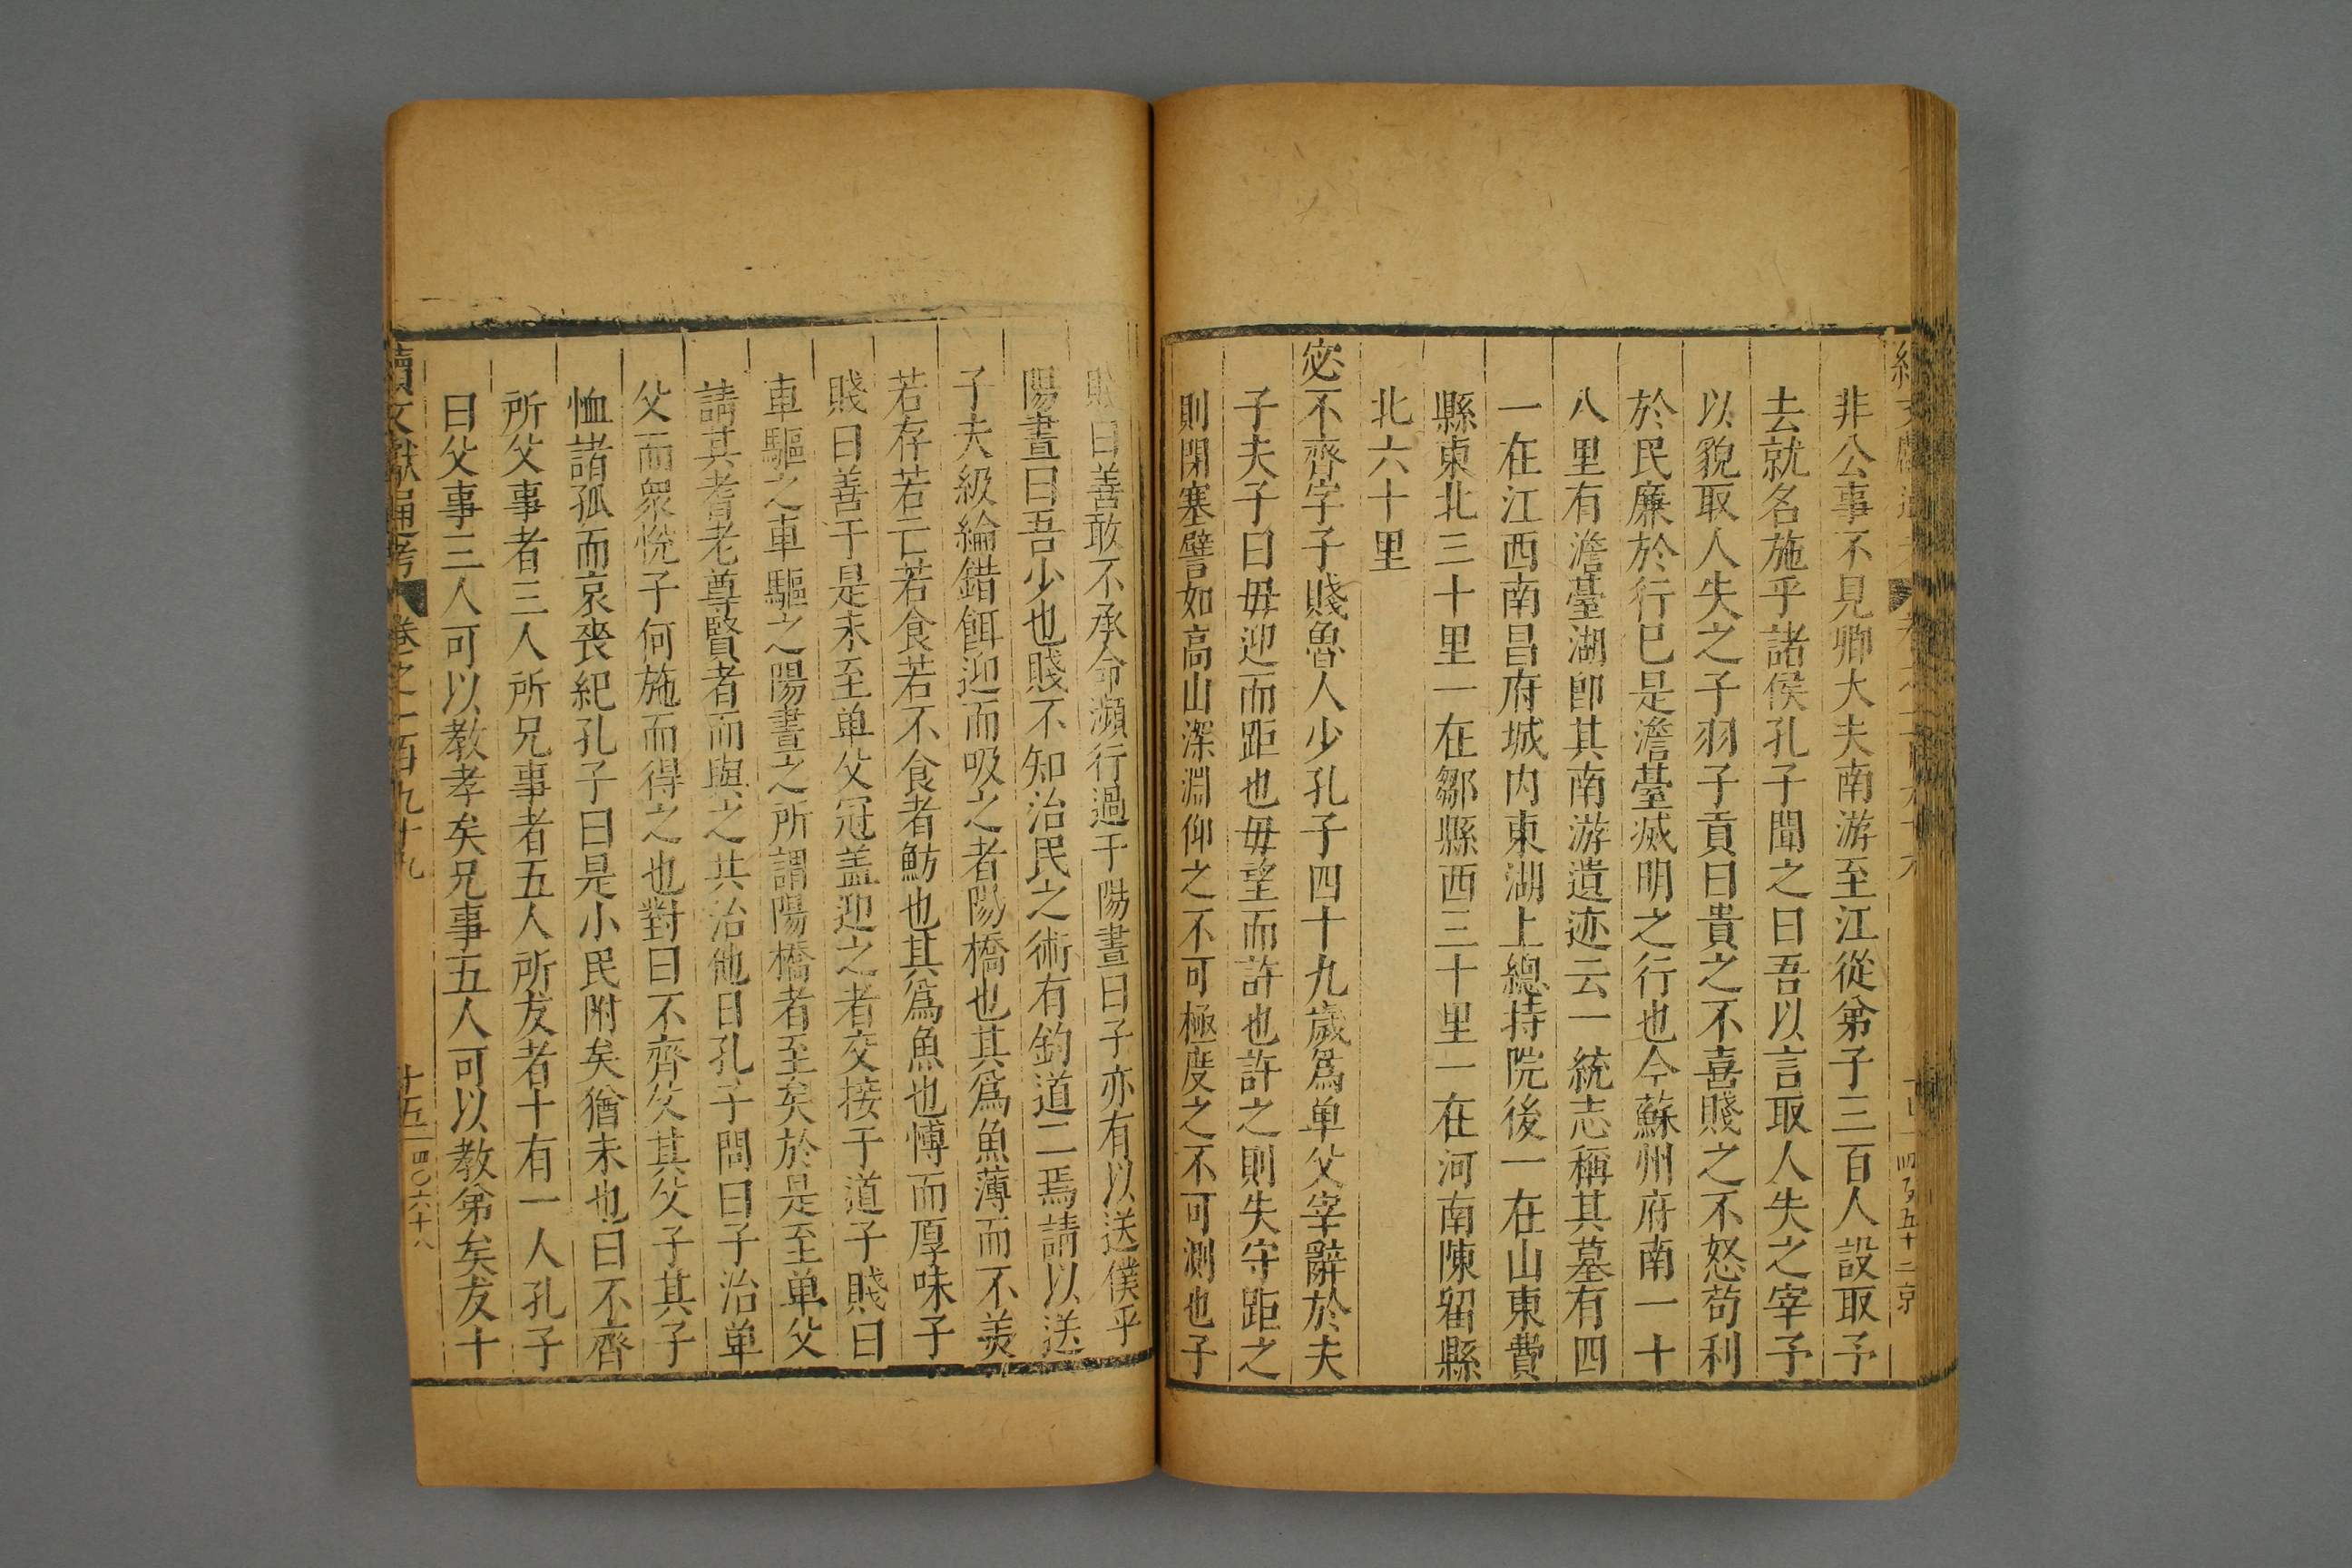 非公事不見卿大夫南游至江從弟子三百人設取予
去就名施乎諸侯孔子聞之曰吾以言取人失之宰予
以貌取人失之子羽子貢曰貴之不喜賤之不怒苟利
於民廉於行已是澹臺滅明之行也今蘇州府南一十
八里有澹臺湖卽其南游遺迹云一統志稱其墓有四
一在江西南昌府城内東湖上總持院後一在山東費
縣東北三十里一在鄒縣西三十里一在河南陳留縣
北六十里
宓不齊字子賤魯人少孔子四十九歲爲单父宰辭於夫
子夫子曰毋迎而距也毋望而許也許之則失守距之
則閉塞譬如高山深淵仰之不可極度之不可測也子
賤曰善敢不承命瀕行過于陽晝曰子亦有以送僕乎
陽晝曰吾少也賤不知治民之術有釣道二焉請以送
子夫級綸錯餌迎而吸之者陽橋也其爲魚薄而不美
若存若亡若食若不食者魴也其爲魚也愽而厚味子
賤曰善于是未至单父冠盖迎之者交接于道子賤曰
車驅之車驅之陽晝之所謂陽橋者至矣於是至单父
請其耆老尊賢者而與之共治他日孔子問曰子治单
父而衆悅子何施而得之也對曰不齊父其父子其子
恤諸孤而哀喪紀孔子曰是小民附矣猶未也曰不齊
所父事者三人所兄事者五人所友者十有一人孔子
曰父事三人可以教孝矣兄事五人可以教弟矣友十
續文獻通考 卷之一百九十九 十五 四〇六十八